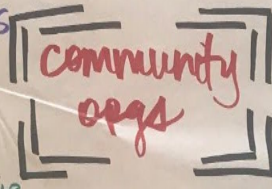 community
orgs